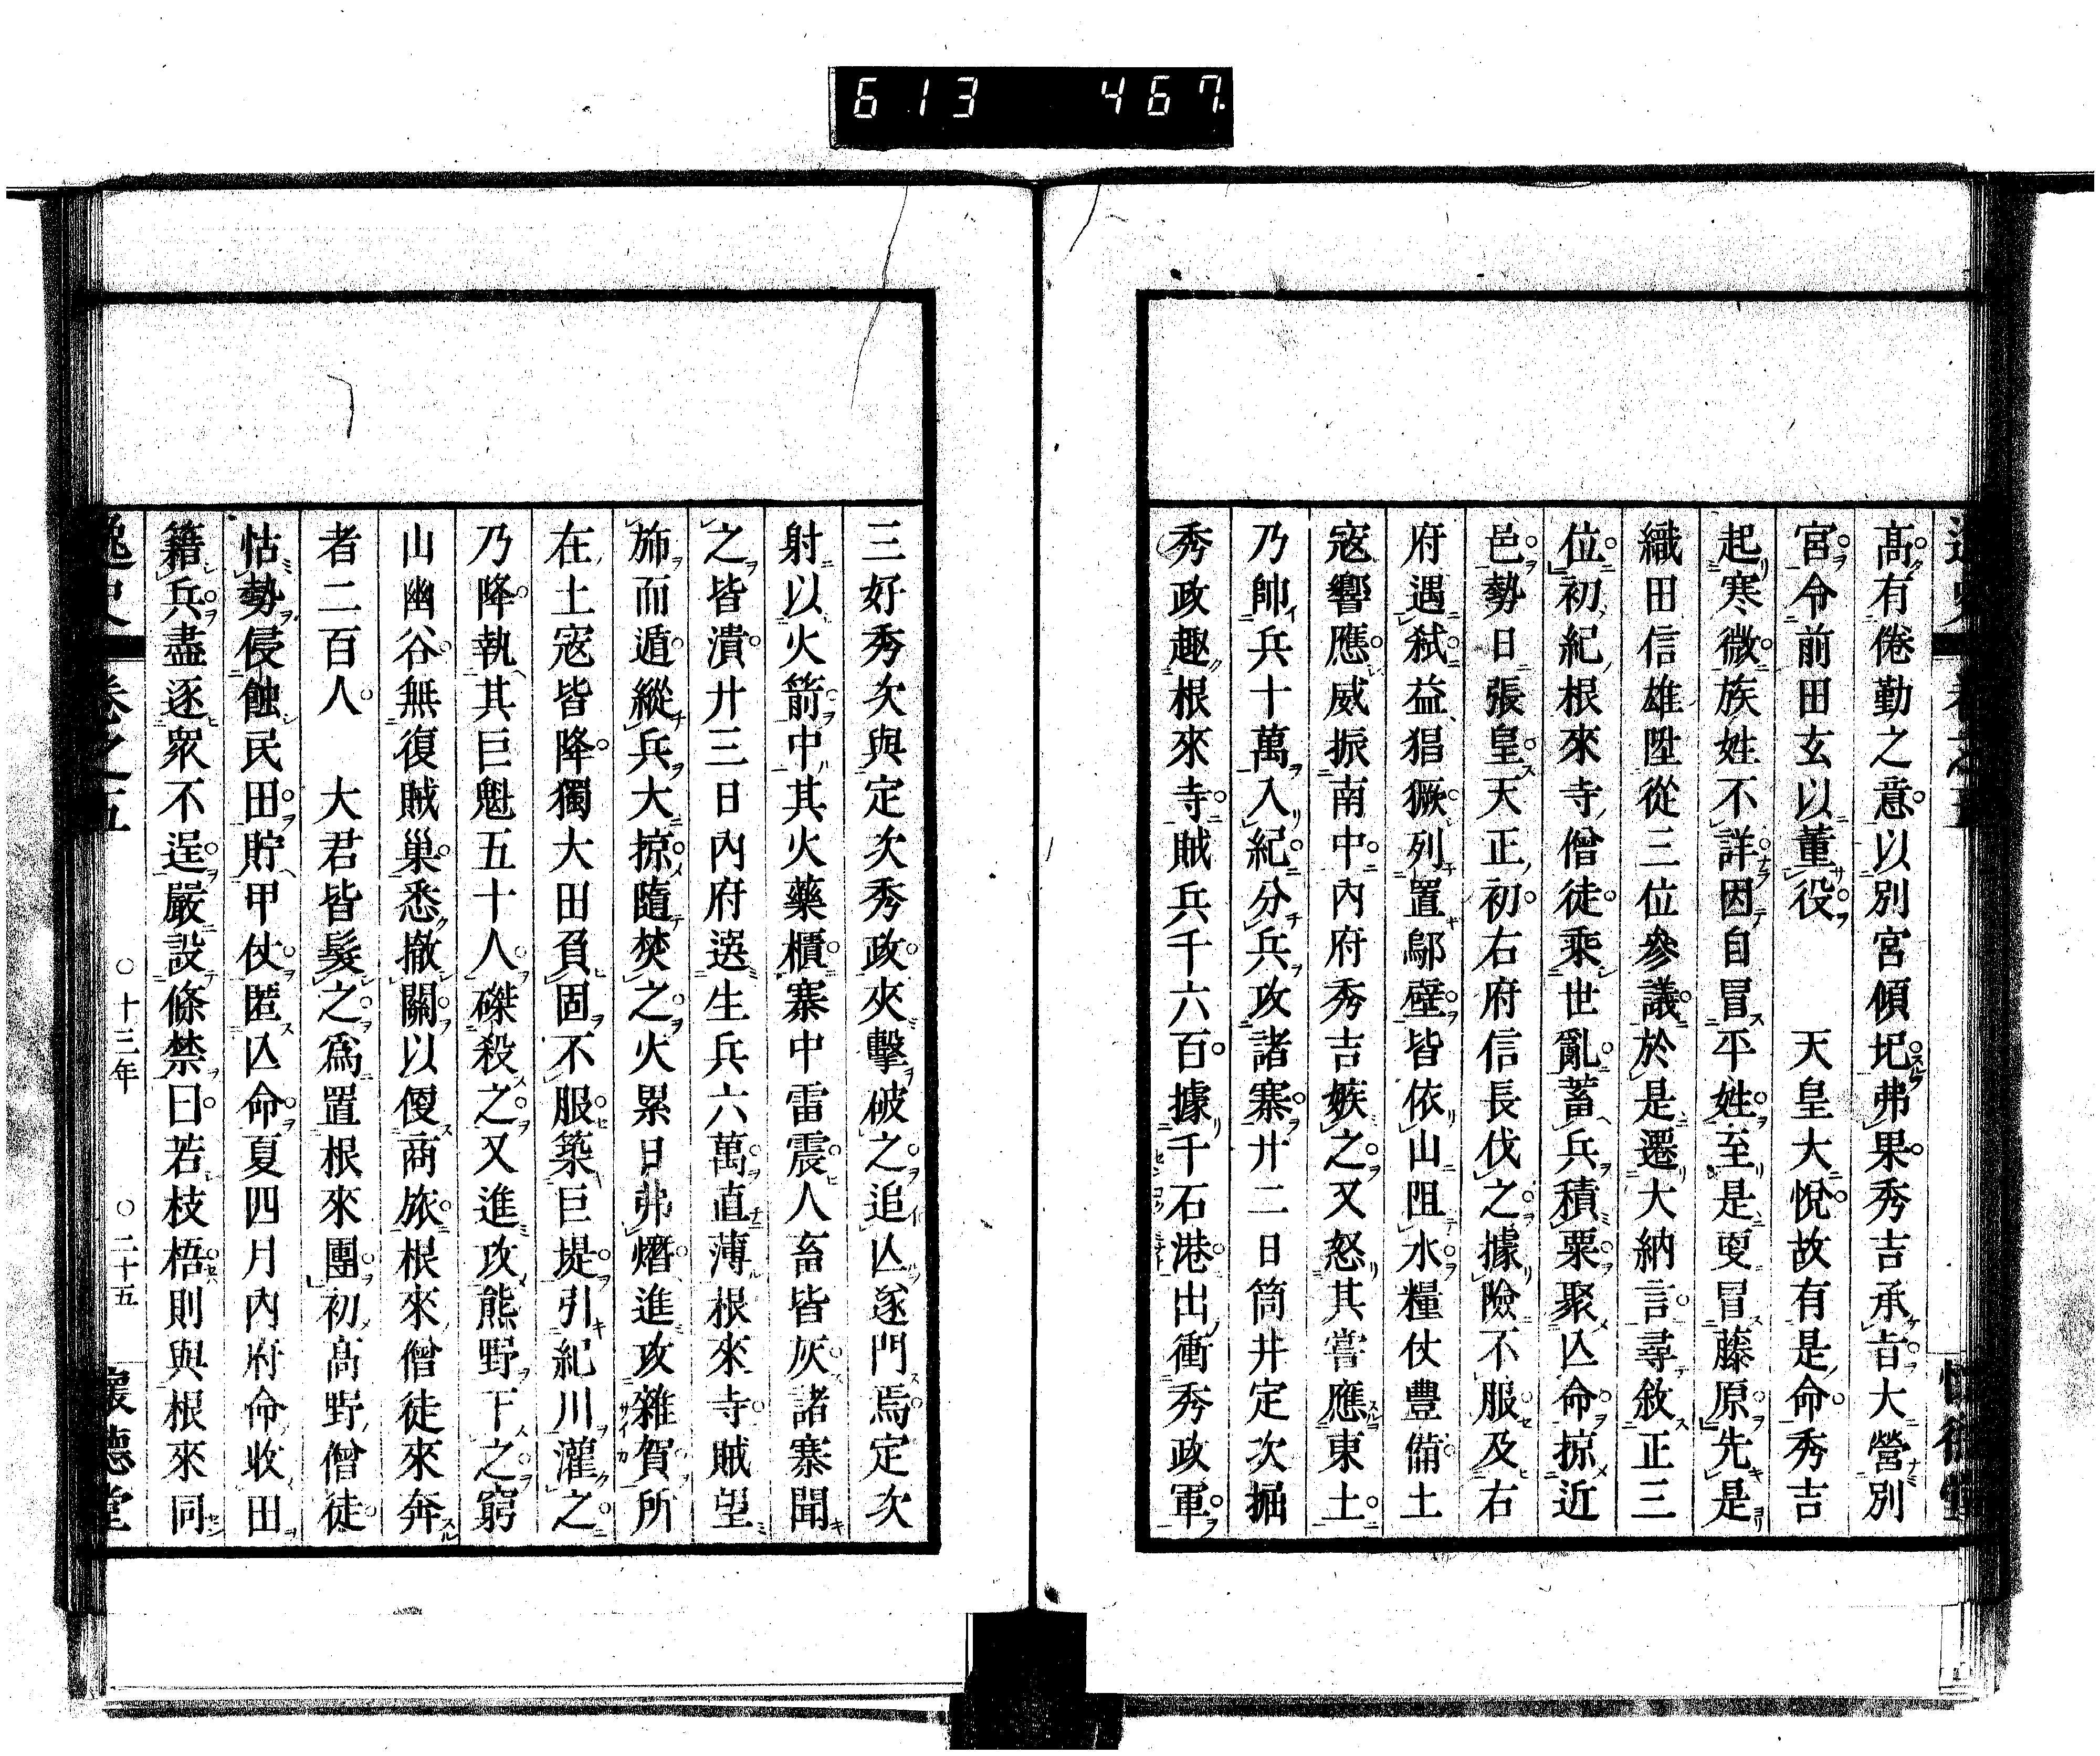 613 467
高有倦勤之意以別宮傾圯弗果秀吉承旨大營別
宮令前田玄以董役 天皇大悅故有是命秀吉
起寒微族姓不詳因自冒平姓至是更冒藤原先是
織田信雄陞從三位參議於是遷大納言尋敘正三
位初紀根來寺僧徒乘世亂蓄兵積粟聚亾命掠近
邑勢日張皇天正初右府信長伐之據險不服及右
府遇弑益猖獗列置鄔壁皆依山阻水糧仗豐備土
寇響應威振南中內府秀吉嫉之又怒其嘗應東土
乃帥兵十萬入紀分兵攻諸寨廿二日筒井定次堀
秀政趣根來寺賊兵千六百據千石港出衝秀政軍
三好秀次與定次秀政夾擊破之追亾逐門焉定次
射以火箭中其火藥櫃寨中雷震人畜皆灰諸寨聞
之皆潰廿三日內府選生兵六萬直薄根來寺賊望
斾而遁縱兵大掠隨焚之火累日弗熸進攻雜賀所
在土寇皆降獨大田負固不服築巨堤引紀川灌之
乃降執其巨魁五十人磔殺之又進攻熊野下之窮
山幽谷無復賊巢悉撤關以便商旅根來僧徒來奔
者二百人 大君皆髮之爲置根來團初高野僧徒
怙勢侵蝕民田貯甲仗匿亾命夏四月內府命收田
籍兵盡逐衆不逞嚴設條禁曰若枝梧則與根來同
逸史 卷之五 ○十三年 ○二十五 懷德堂